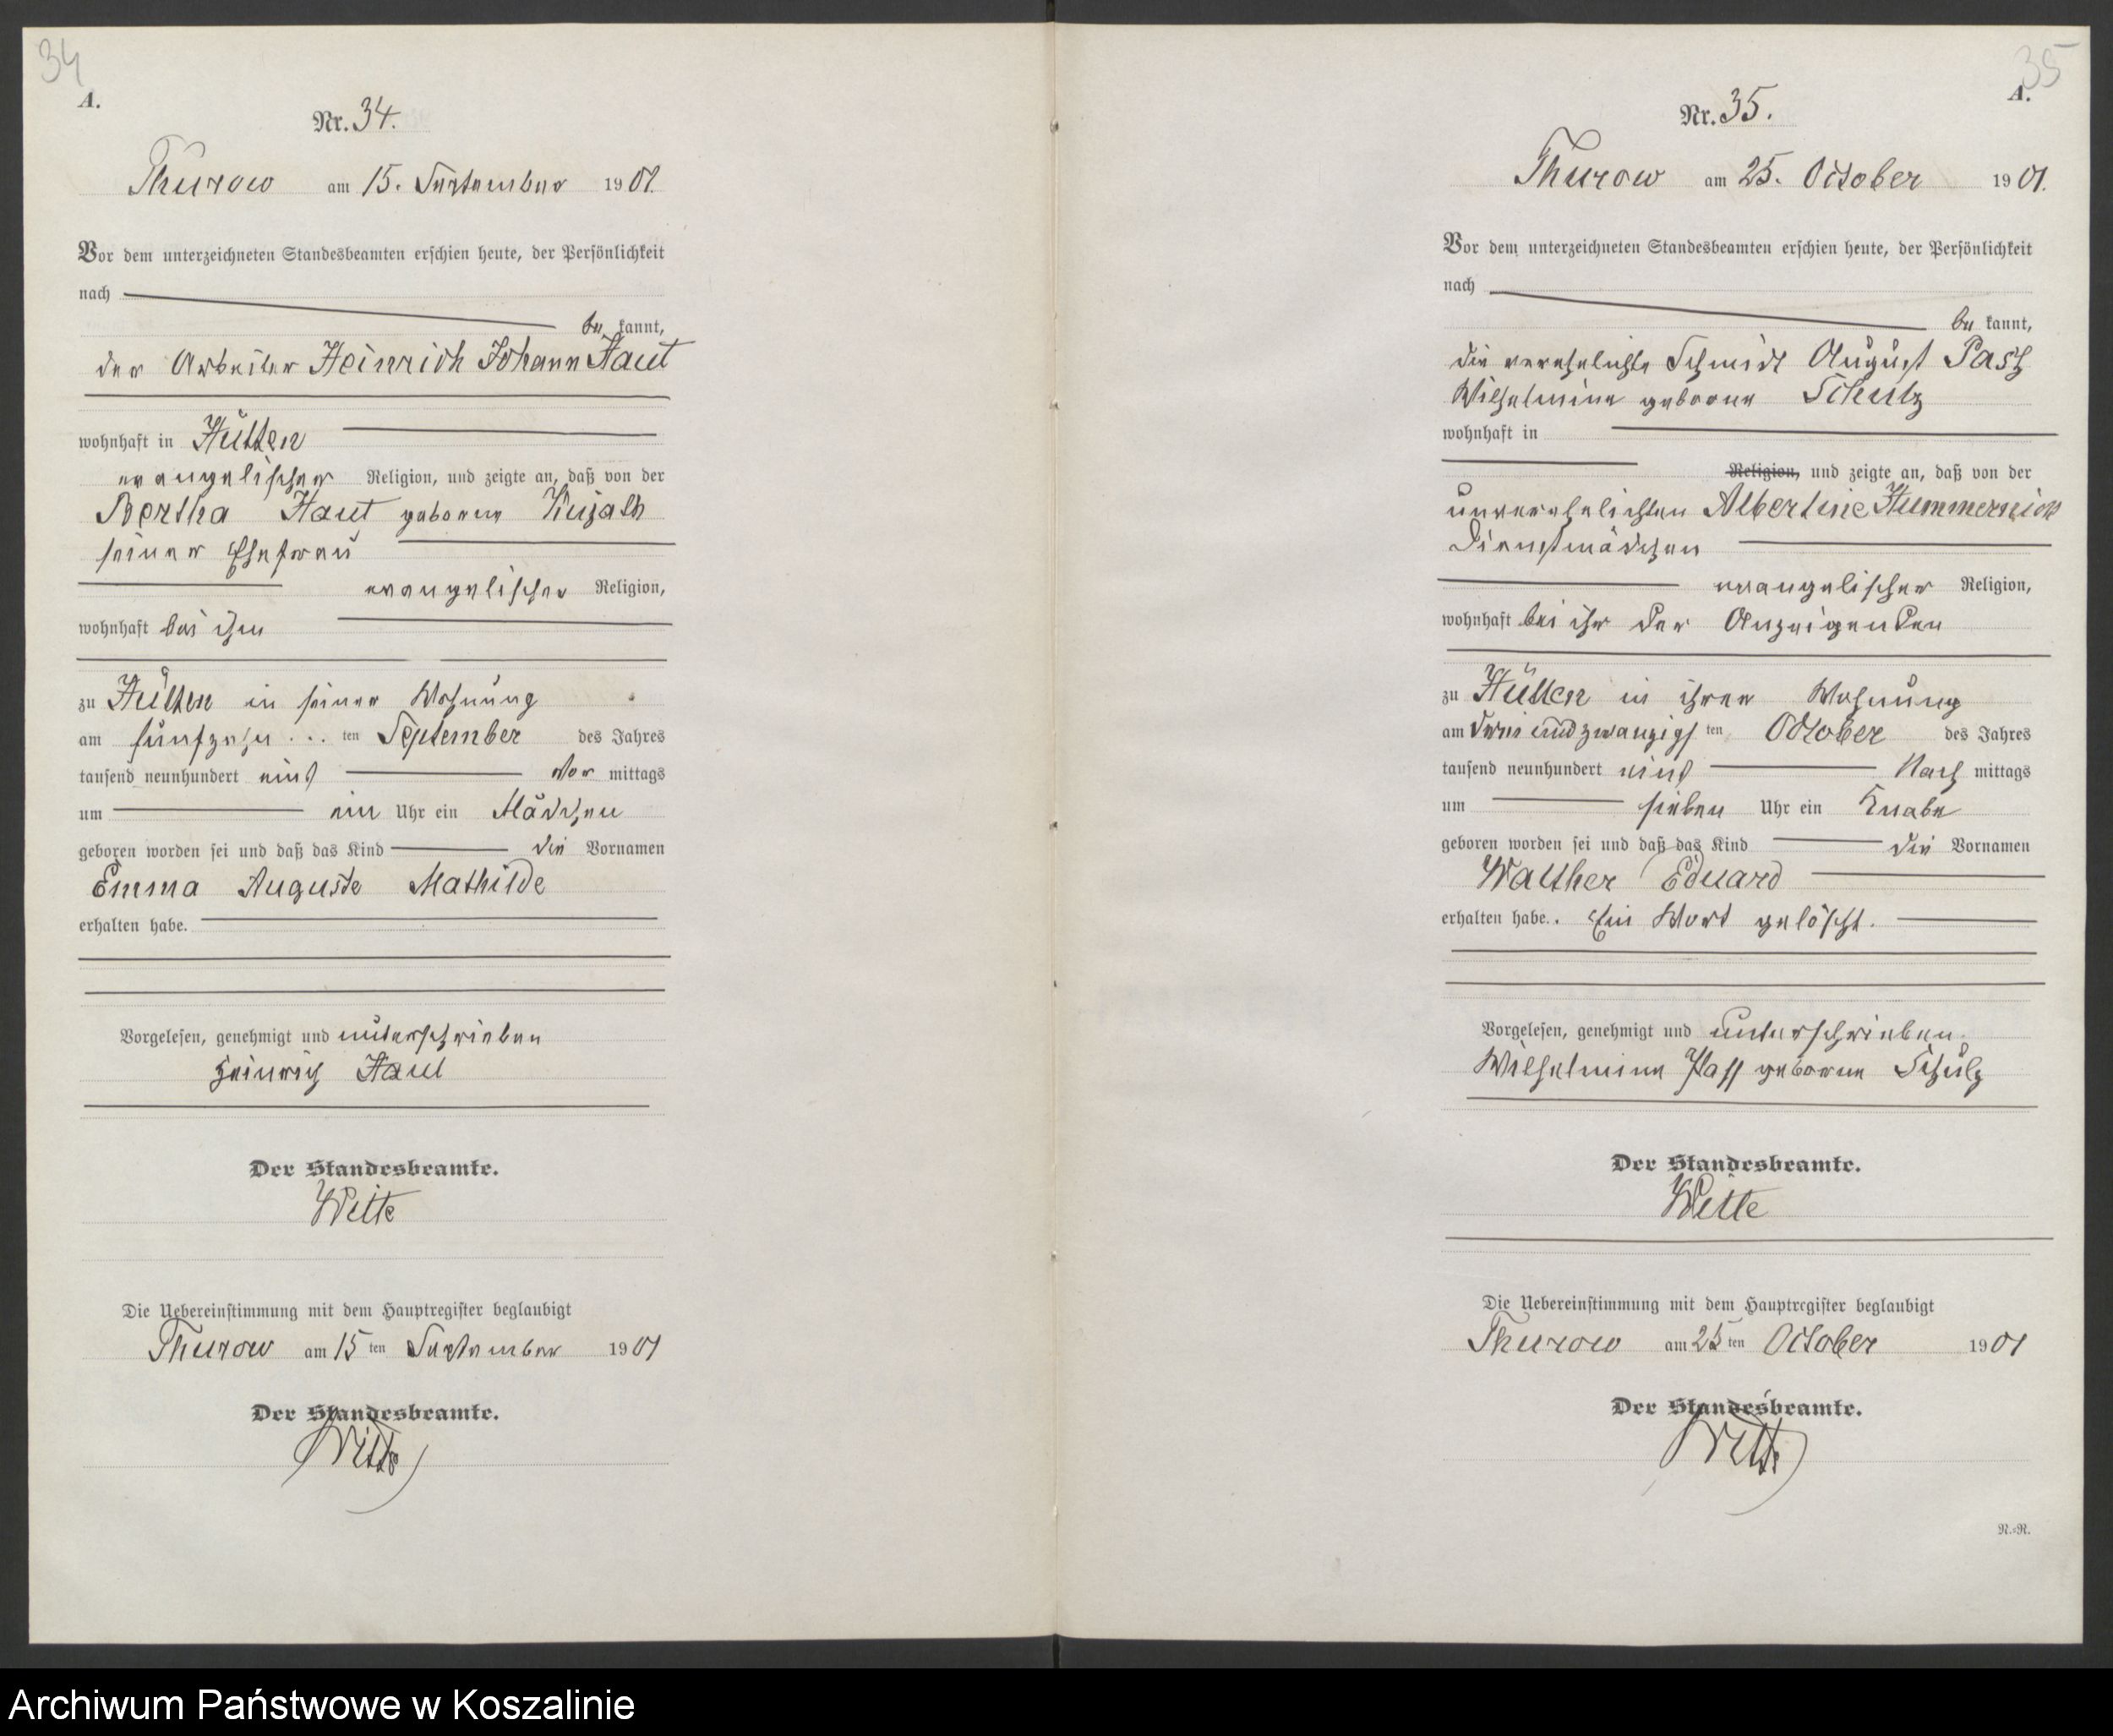 34
A.
Nr. 34.
Thurow am 15. September 1901.
Vor dem unterzeichneten Standesbeamten erschien heute, der Persönlichkeit
nach
be kannt,
der Arbeiter Heinrich Johann Haut
wohnhaft in Hütten
evangelischer Religion, und zeigte an, daß von der
Bertha Haut geborne Kujath
seiner Ehefrau
evangelischer Religion,
wohnhaft bei ihm
zu Hütten in seiner Wohnung
am fünfzehn ... ten September des Jahres
tausend neunhundert eins Vor mittags
um ein Uhr ein Mädchen
geboren worden sei und daß das Kind die Vornamen
Emma Auguste Mathilde
erhalten habe.
Vorgelesen, genehmigt und unterschrieben
Heinrich Haut
Der Standesbeamte.
Witte
Die Uebereinstimmung mit dem Hauptregister beglaubigt
Thurow am 15 ten September 1901
Der Standesbeamte.
Witte
35
A.
Nr. 35.
Thurow am 25. October 1901.
Vor dem unterzeichneten Standesbeamten erschien heute, der Persönlichkeit
nach
be kannt,
die verehelichte Schmidt August Pasz
Wilhelmine geborne Schulz
wohnhaft in
Religion, und zeigte an, daß von der
unverehelichten Albertine Hummernick
Dienstmädchen
evangelischer Religion,
wohnhaft bei ihr der Anzeigenden
zu Hütten in ihrer Wohnung
am drei und zwanzigs ten October des Jahres
tausend neunhundert eins Nach mittags
um sieben Uhr ein Knabe
geboren worden sei und daß das Kind die Vornamen
Walther Eduard
erhalten habe. . Ein Wort gelöscht.
Vorgelesen, genehmigt und unterschrieben.
Wilhelmine Pass geborne Schulz
Der Standesbeamte.
Witte
Die Uebereinstimmung mit dem Hauptregister beglaubigt
Thurow am 25 ten October 1901
Der Standesbeamte.
Witte
N.=R.
Archiwum Państwowe w Koszalinie